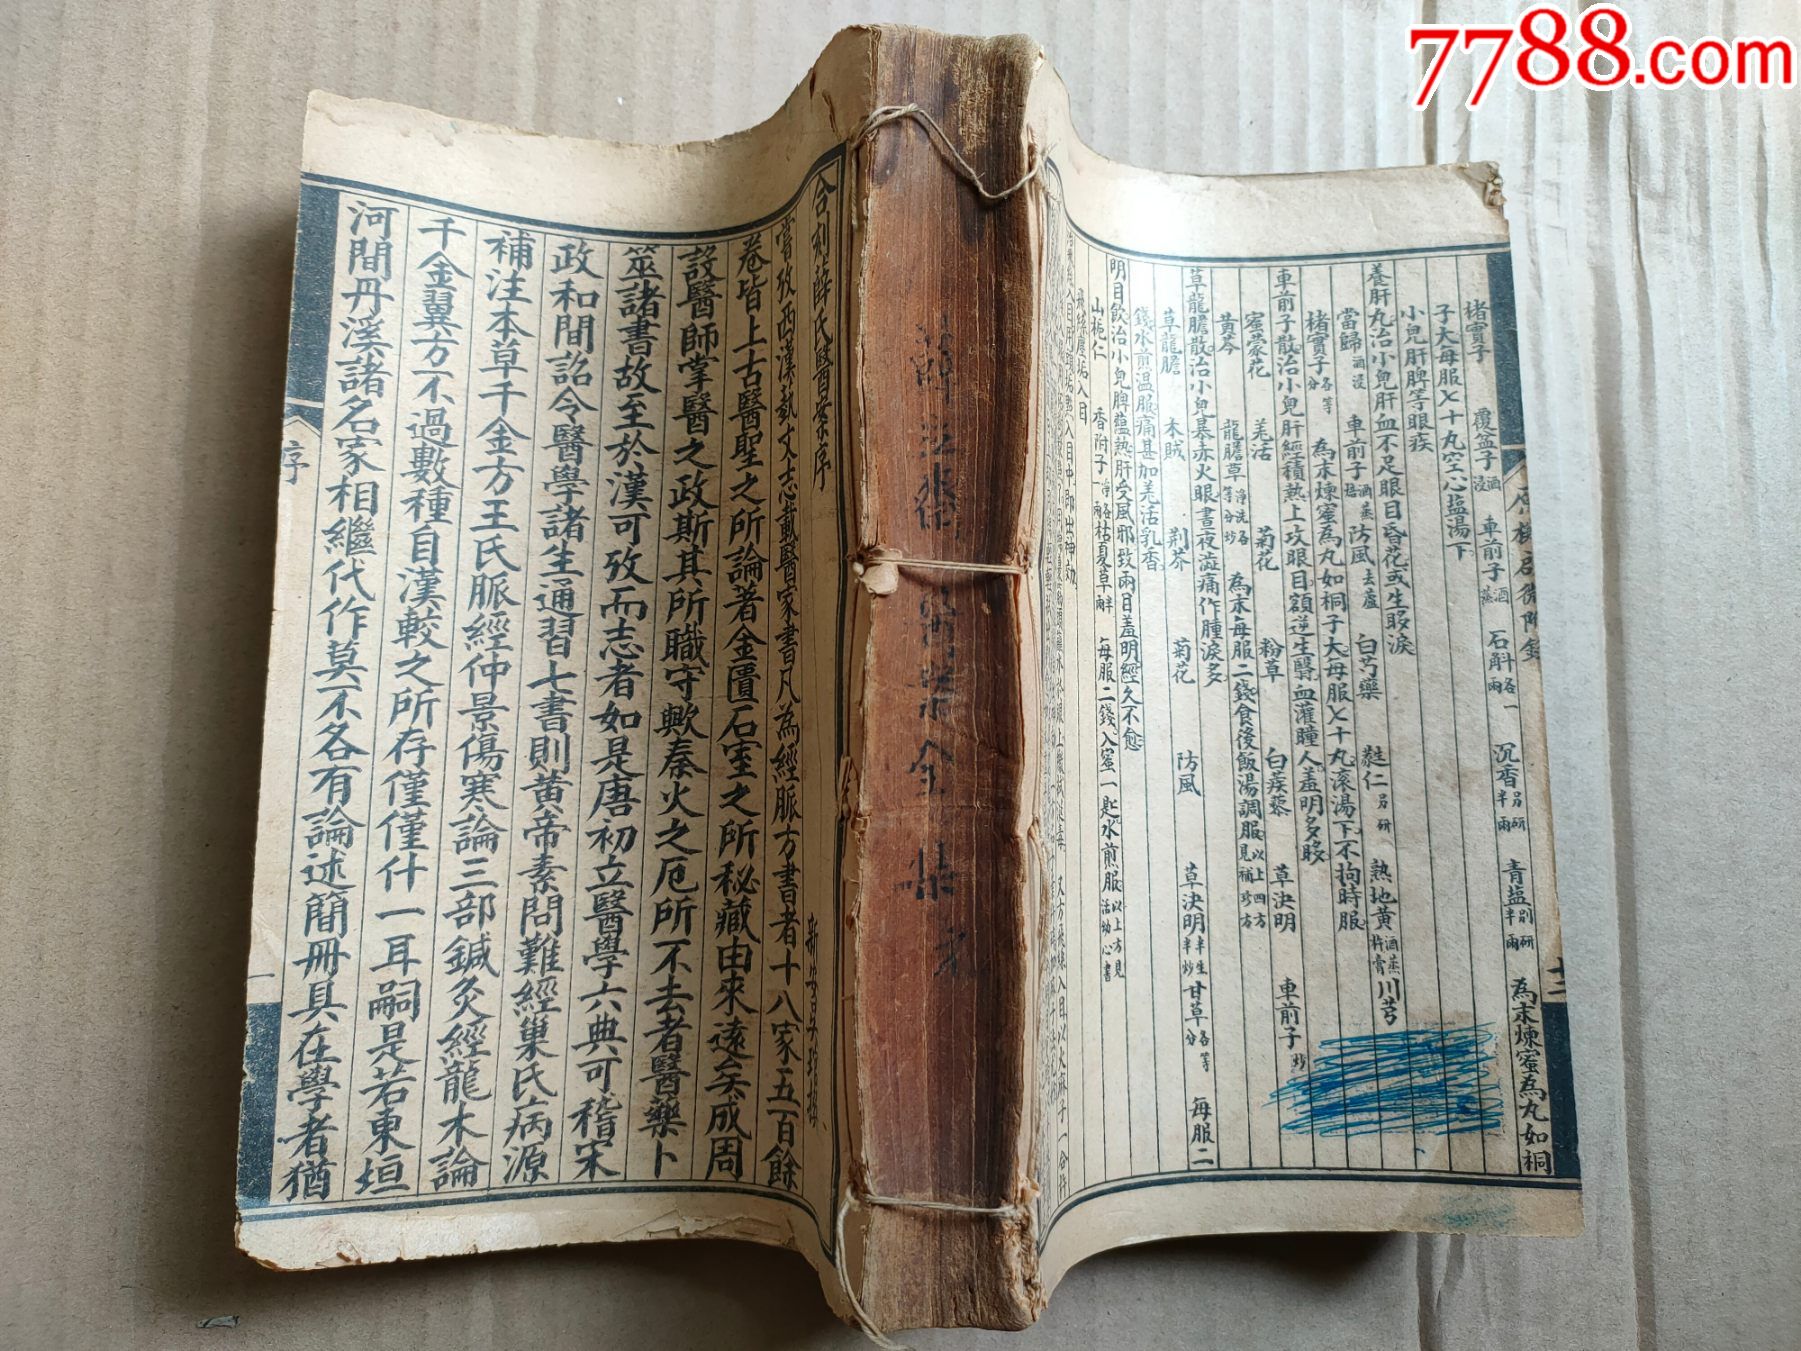 7788.com
合刻薛氏醫案序
新安吳玿撰
嘗攷西漢藝文志載醫家書凡為經脈方書者十八家五百餘
卷皆上古醫聖之所論著金匱石室之所秘藏由來遠矣成周
設醫師掌醫之政斯其所職守歟秦火之厄所不去者醫藥卜
筮諸書故至於漢可攷而志者如是唐初立醫學六典可稽宋
政和間詔令醫學諸生通習七書則黃帝素問難經巢氏病源
補注本草千金方王氏脈經仲景傷寒論三部鍼灸經龍木論
千金翼方不過數種自漢較之所存僅僅什一耳嗣是若東垣
河間丹溪諸名家相繼代作莫不各有論述簡冊具在學者猶
序
一
薛 醫案全集
原機啟微附錄
十二
楮實子 覆盆子酒浸 車前子酒蒸 石斛各一兩 沉香另研半兩 青盐別研半兩 為末煉蜜為丸如桐
子大每服七十丸空心盐湯下
小兒肝脾等眼疾
養肝丸治小兒肝血不足眼目昏花或生眵淚
當歸酒浸 車前子酒蒸焙 防風去蘆 白芍藥 蕤仁另研 熟地黃酒蒸杵膏 川芎
楮實子各等分 為末煉蜜為丸如桐子大每服七十丸滾湯下不拘時服
車前子散治小兒肝經積熱上攻眼目額逆生翳血灌瞳人羞明多眵
蜜蒙花 羌活 菊花 粉草 白蒺藜 草決明 車前子炒
黃芩 龍膽草淨洗各等分炒 為末每服二錢食後飯湯調服以上四方見補珍方
草龍膽散治小兒暴赤火眼晝夜澁痛作腫淚多
草龍膽 木賊 荊芥 菊花 防風 草決明半生半炒 甘草各等分 每服二
錢水煎温服痛甚加羌活乳香
明目飲治小兒脾蘊熱肝受風邪致兩目羞明經久不愈
山梔仁 香附子淨各一兩 枯夏草半兩 每服二錢入蜜一匙水煎服以上方見活幼心書
飛絲塵垢入目